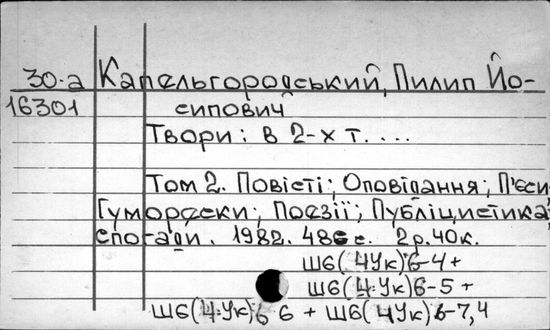 30-а Капельгородський, Пилип Йо-
16301 сипович
Твори: в 2-х т. ....
Том 2. Повісті; Оповідання; П'єси
Гуморески; Поезії; Публіцистика;
спогади. 1982. 486 с. 2р.40к.
Ш6(4Ук)6-4 +
Ш6(4Ук)6-5 +
Ш6(4Ук)6-6 + Ш6(4Ук)6-7,4